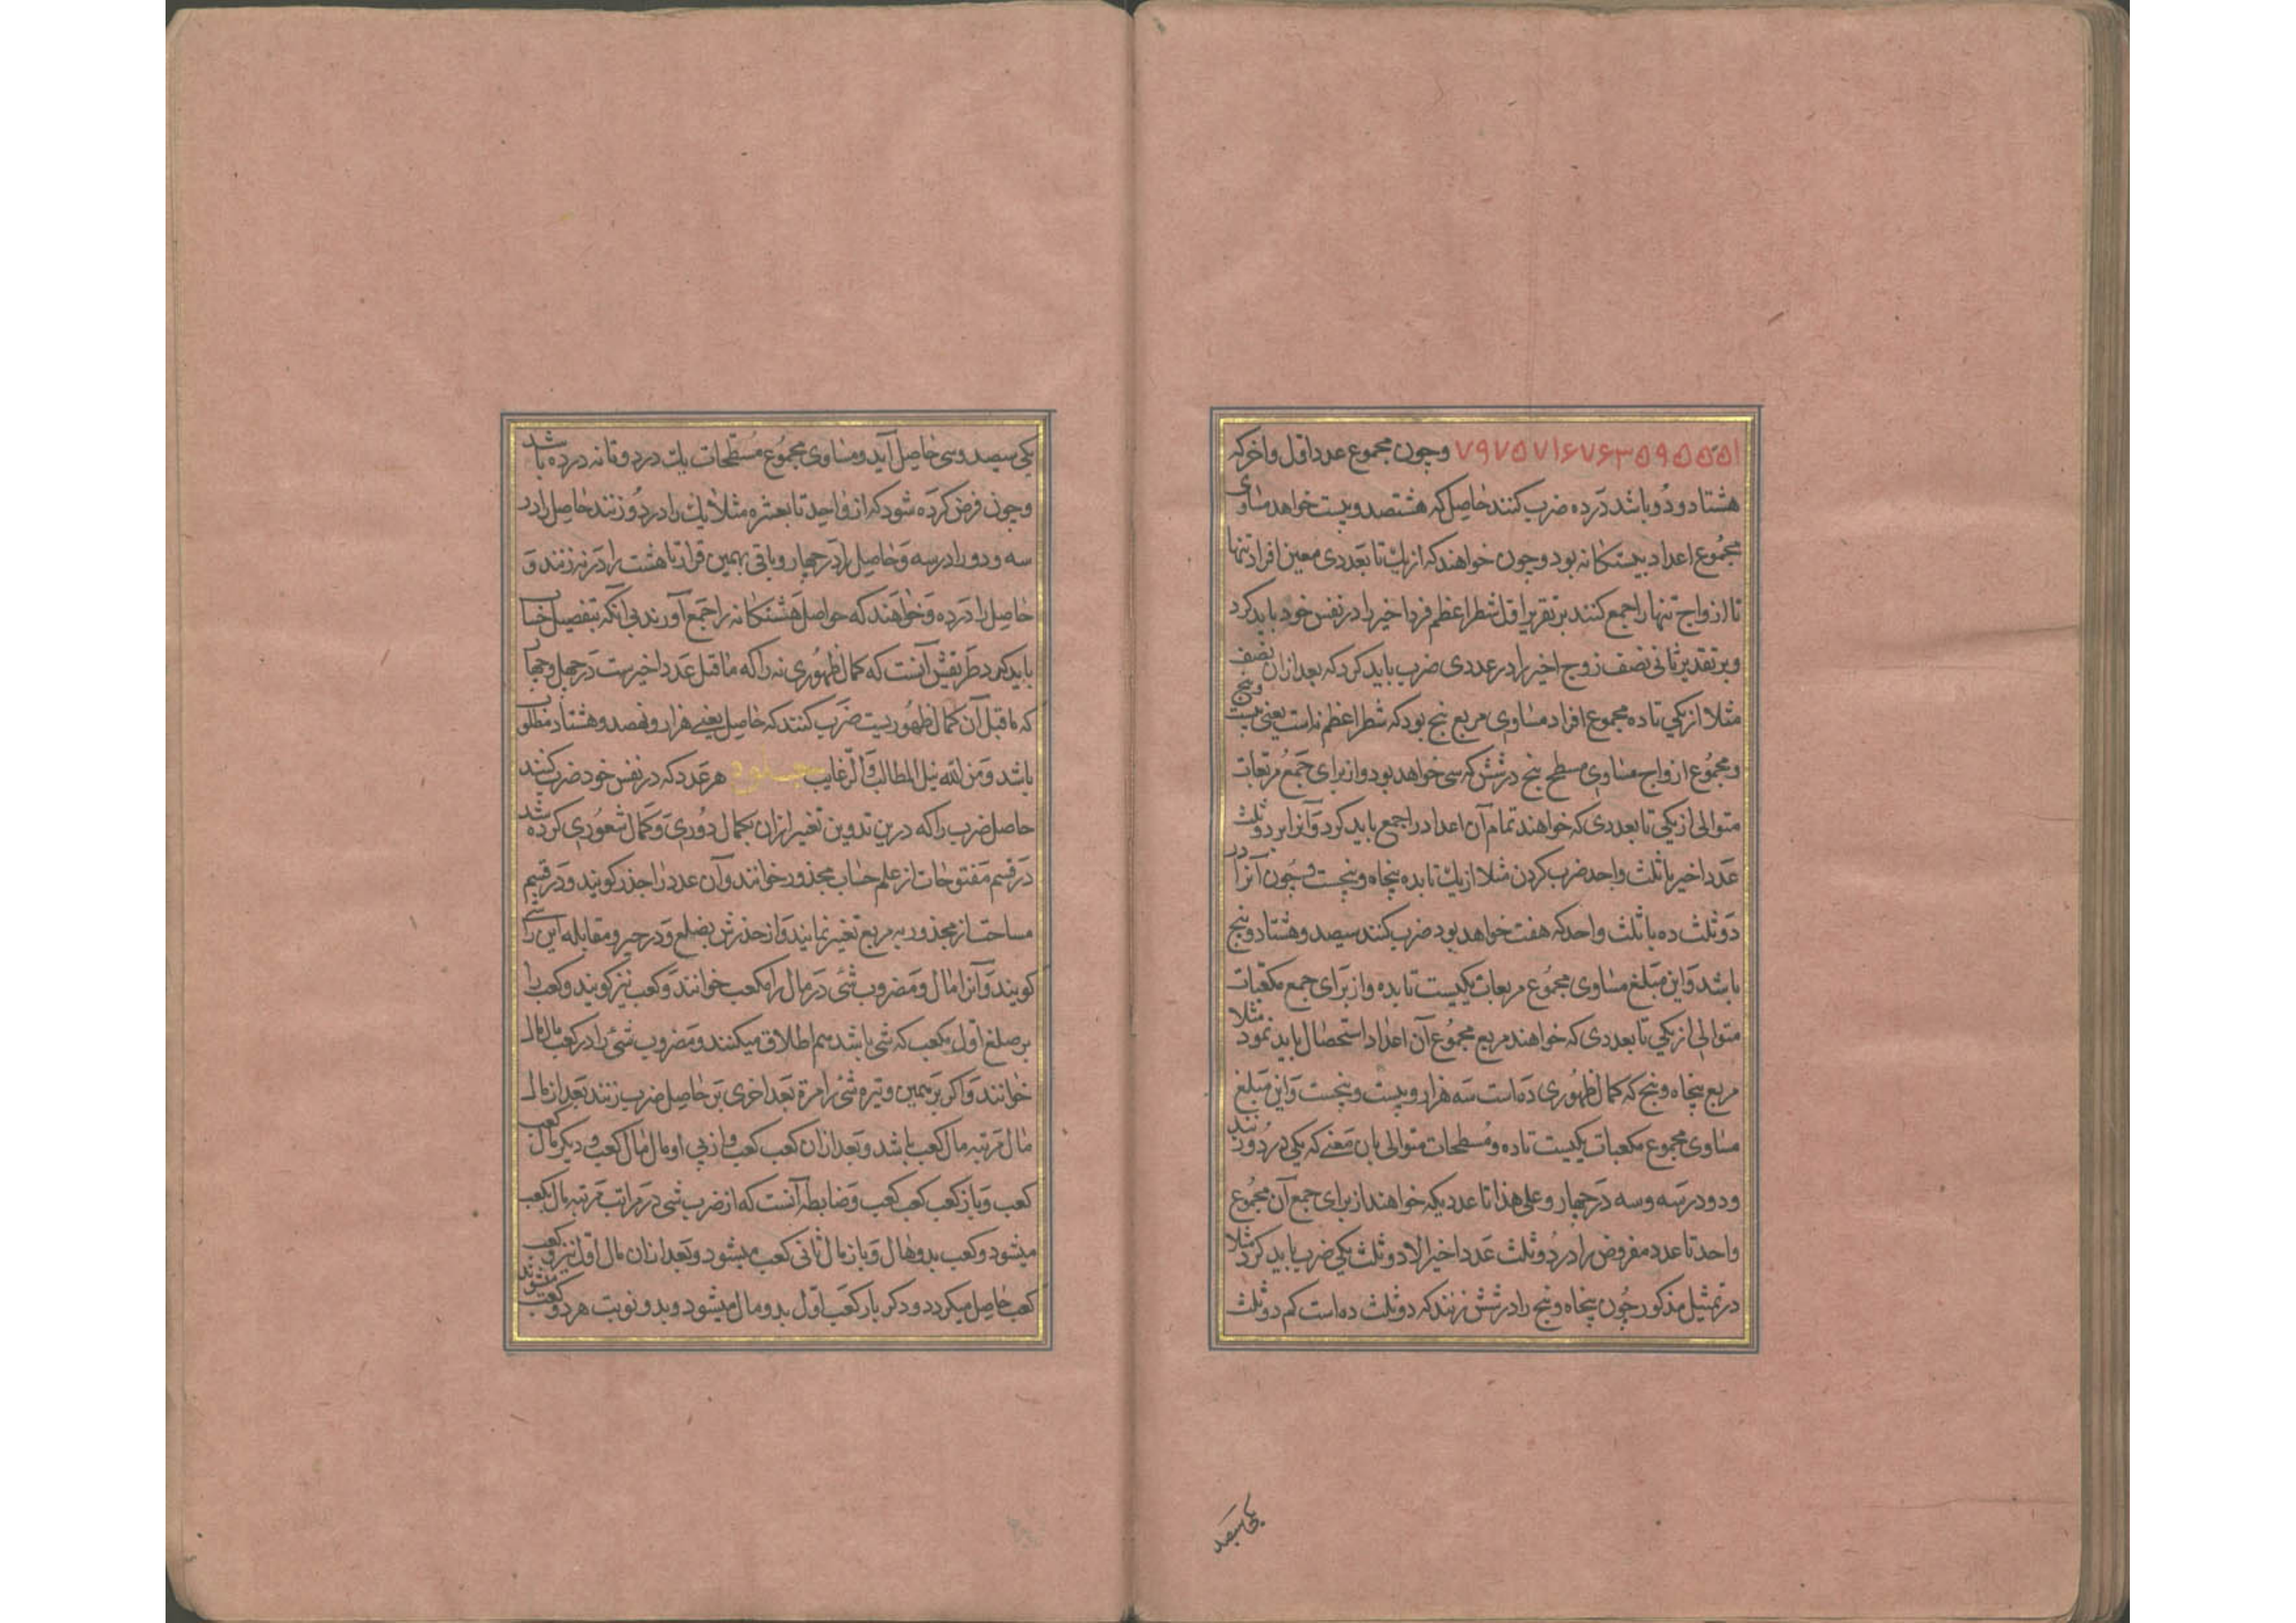 ۷۹۷۵۷۱۶۷۶۳۵۹۵۵۵۱ وچون مجموع عدد اول و اخر که
هشتاد و دو باشد در ده ضرب کنند حاصل که هشتصد و بیست خواهد مساوی
مجموع اعداد بیستکانه بود و چون خواهند که از یک تا بعددی معین افراد تنها
تا ازواج تنها را جمع کنند بر تقریر اول شطر اعظم فرد اخیر را در نفس خود باید کرد
و بر تقدیر ثانی نصف زوج اخیر را در عددی ضرب باید کرد که بعد از ان نصف
مثلا از یکی تا ده مجموع افراد مساوی مربع پنج بود که شطر اعظم نه است یعنی بیست و پنج
و مجموع ازواج مساوی مسطح پنج در شش که سی خواهد بود و از برای جمع مربعات
متوالی از یکی تا بعددی که خواهند تمام آن اعداد را جمع باید کرد و آنرا بر دو ثلث
عدد اخیر با ثلث واحد ضرب کردن مثلا از یک تا بده پنجاه و پنجست و چون آنرا در
دو ثلث ده با ثلث واحد که هفت خواهد بود ضرب کنند سیصد و هشتاد و پنج
باشد و این مبلغ مساوی مجموع مربعات یکیست تا بده و از برای جمع مکعبات
متوالی از یکی تا بعددی که خواهند مربع مجموع آن اعداد استحصال باید نمود مثلا
مربع پنجاه و پنج که کمال ظهوری ده است سه هزار و بیست و پنجست و این مبلغ
مساوی مجموع مکعبات یکیست تا ده و مسطحات متوالی بان معنے که یکی در دو زنند
و دو در سه و سه در چهار و علی هذا تا عددیکه خواهند از برای جمع آن مجموع
واحد تا عدد مفروض را در دو ثلث عدد اخیر الا دو ثلث یکی ضرب باید کرد مثلا
در تمثیل مذکور چون پنجاه و پنج را در شش زنند که دو ثلث ده است کم دو ثلث
یکی سیصد
یکی سیصد و سی حاصل آید و مساوی مجموع مسطحات یک در دو تا نه در ده باشد
و چون فرض کرده شود که از واحد تا بعشره مثلا یک را در دو زنند حاصل را در
سه و دو را در سه و حاصل را در چهار و باقی بهمین قرار تا هشت را در نه زنند و
حاصل را در ده و خواهند که حواصل هشتکانه را جمع آورند بی آنکه بتفصیل حساب
باید کرد طریقش آنست که کمال ظهوری نه را که ماقبل عدد اخیرست در چهل و چهار
که ماقبل آن کمال ظهوریست ضرب کنند که حاصل یعنے هزار و نهصد و هشتاد مطلوب
باشد و من الله نیل المطالب و الرغایب هر عدد که در نفس خود ضرب کنند
حاصل ضرب را که درین تدوین تغیر ازان بکمال دوری و کمال شعوری کرده شد
در قسم مفتوحات از علم حساب مجذور خوانند و آن عدد را جذر کویند و در قسم
مساحت از مجذور به مربع تغیر نمایند و از جذرش بضلع و در جبر و مقابله این را شی
کویند و آنرا مال و مضروب شئ در مال را مکعب خوانند و کعب نیز کویند و کعب را
بر ضلع اول مکعب که شی باشد هم اطلاق میکنند و مضروب شئ را در کعب مال مال
خوانند و اکر بر همین وتیره شئ را مرة بعد اخری بر حاصل ضرب زنند بعد از مال
مال مرتبه مال کعب باشد و بعد ازان کعب کعب و از پی او مال مال کعب و دیکر مال کعب
کعب و باز کعب کعب کعب و ضابطه آنست که از ضرب شی در مراتب مرتبه مال کعب
میشود و کعب بدو مال و باز مال ثانی کعب میشود و بعد ازان مال اول نیز و کعب
کعب حاصل میکردد و دکر بار کعب اول بدو مال میشود و بدو نوبت هر دو کعب میشوند